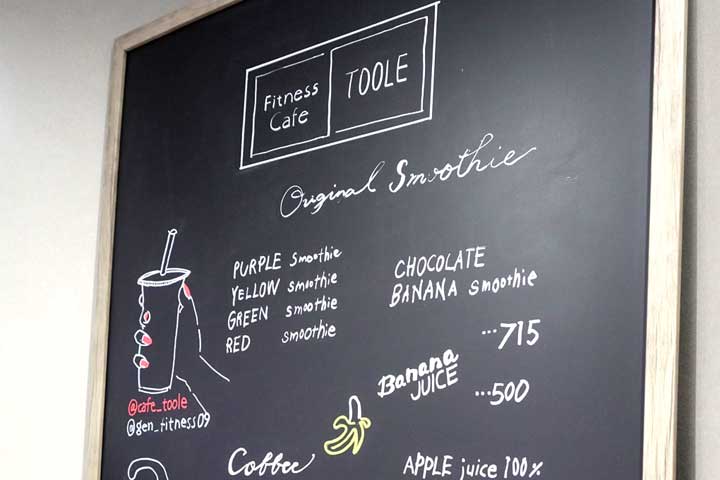 Fitness
Cafe
TOOLE
Original Smoothie
PURPLE Smoothie
YELLOW smoothie
GREEN smoothie
RED smoothie
CHOCOLATE
BANANA smoothie
…715
Banana
JUICE
…500
@cafe_toole
@gen_fitness09
Coffee
APPLE juice 100%